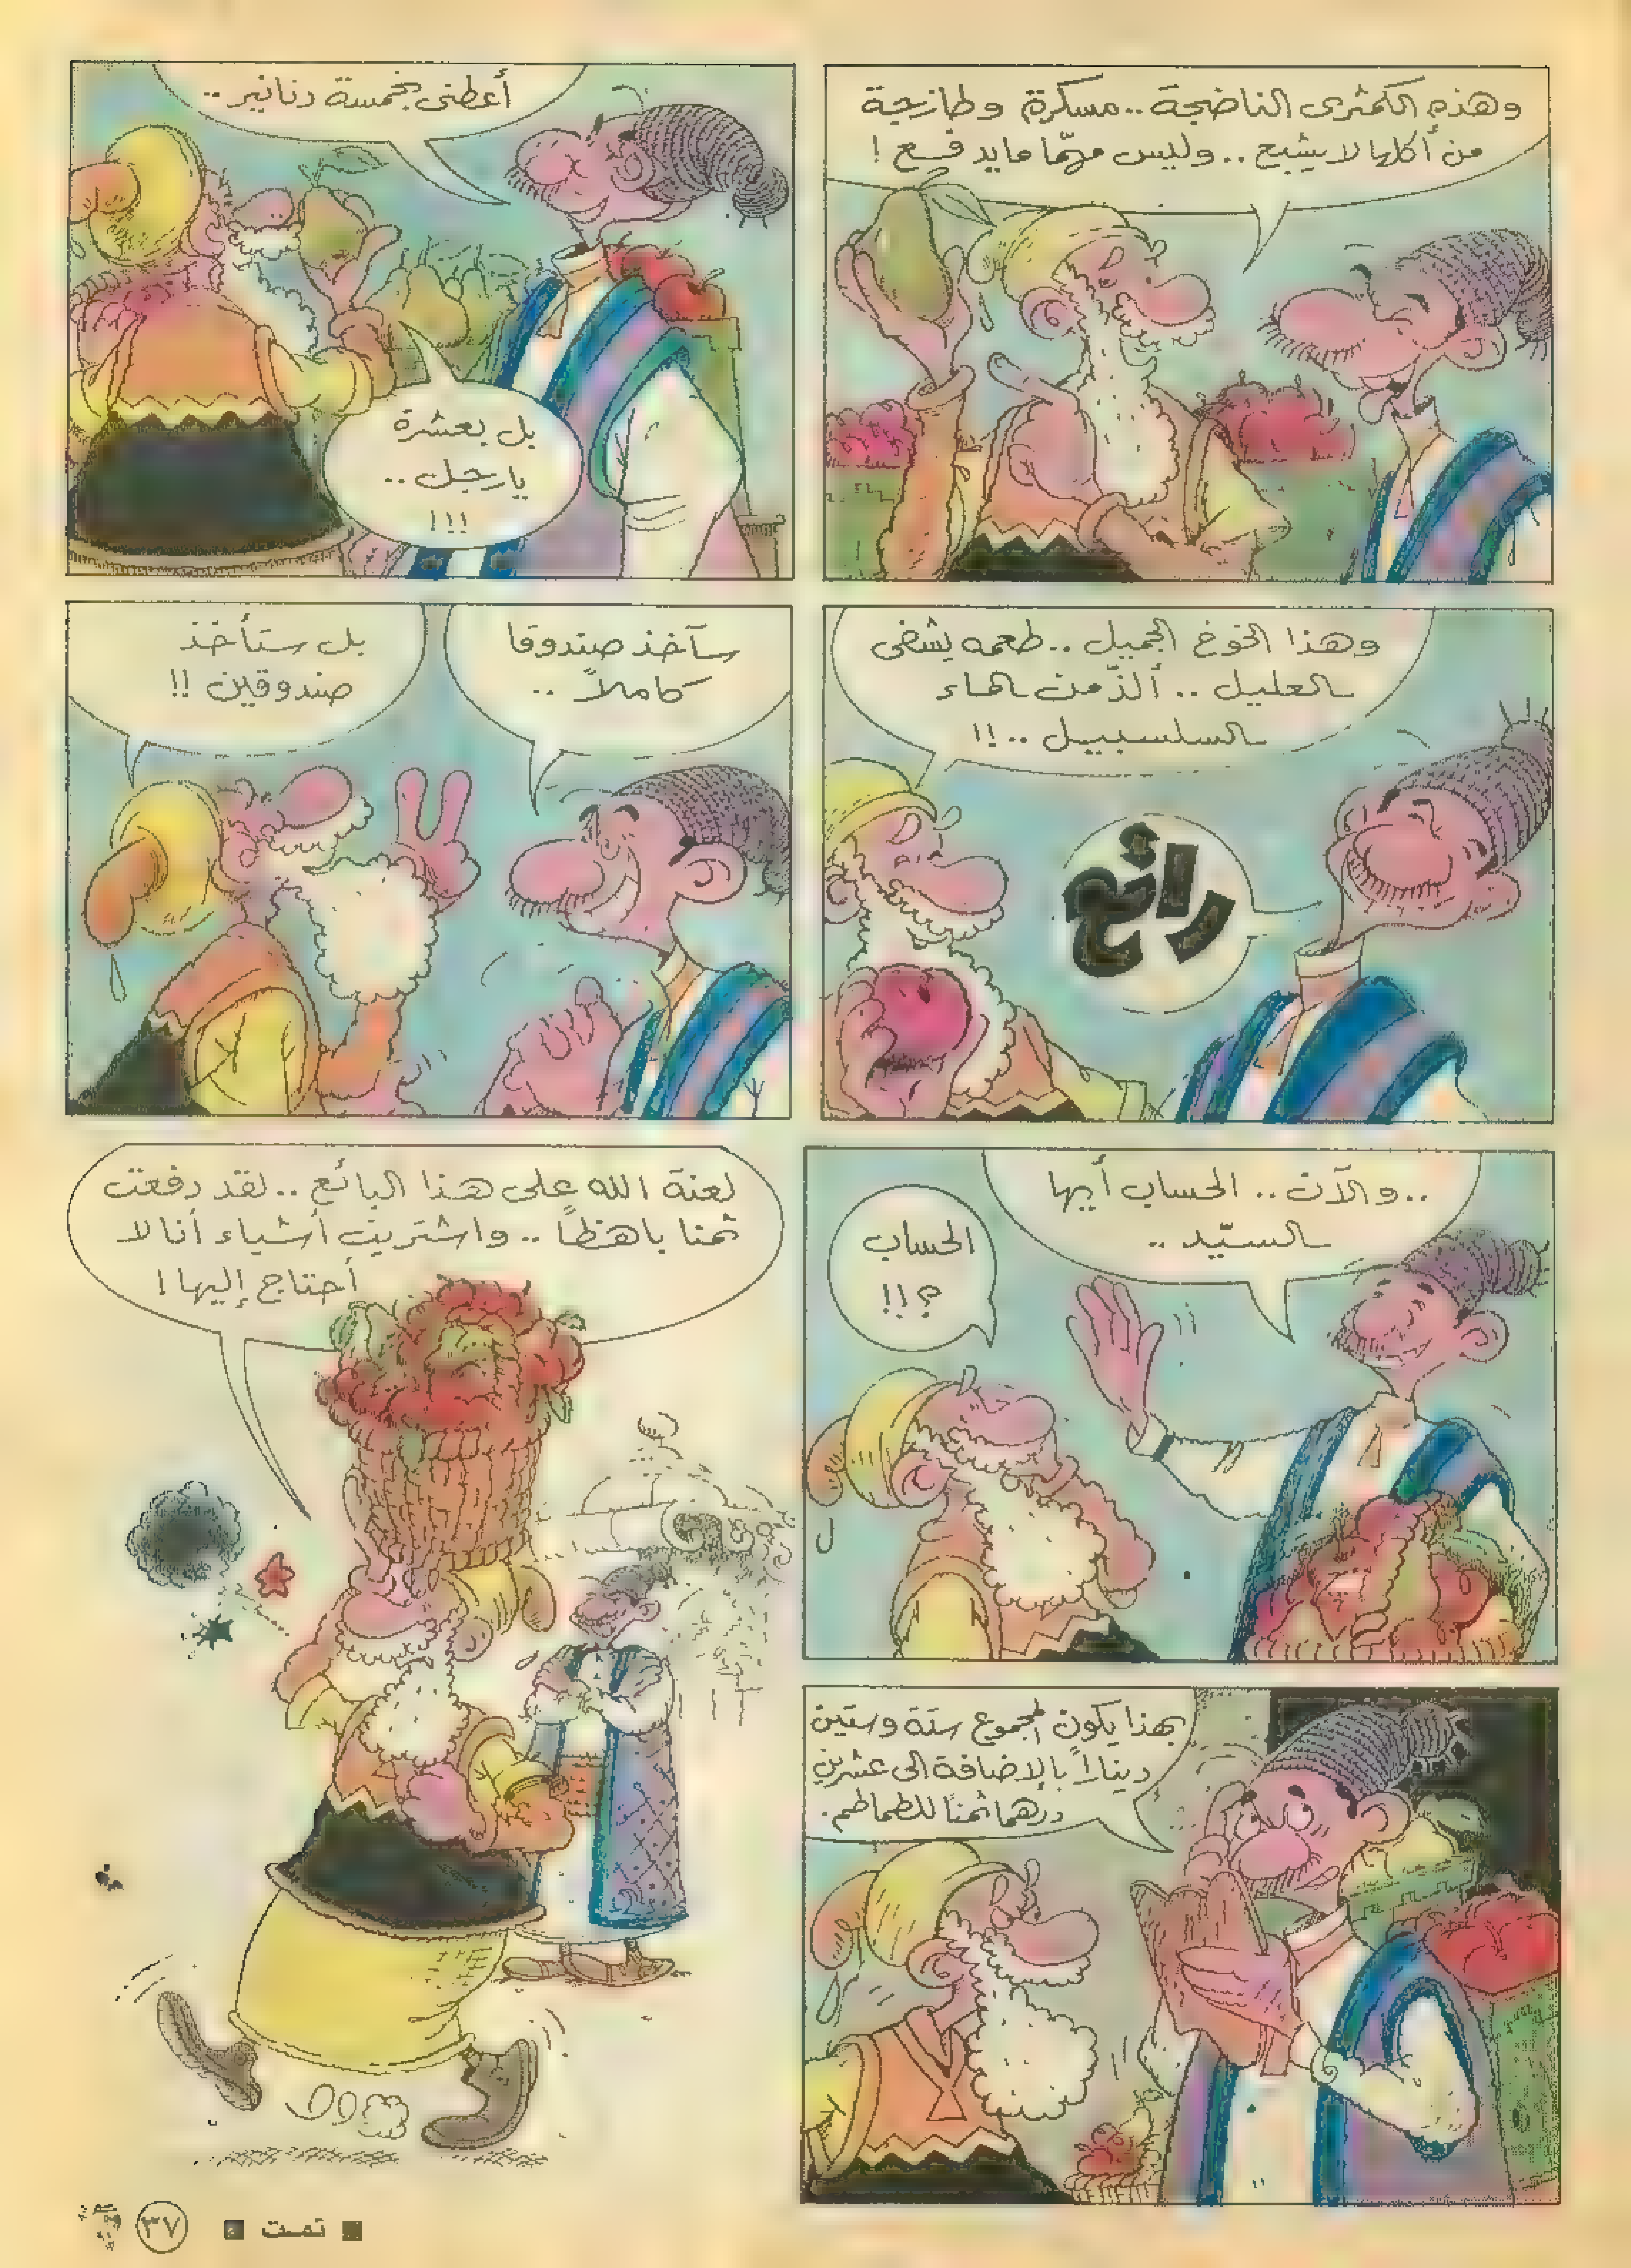 وهذه الكمثرى الناضجة.. مسكرة وطازجة
من أكلها لا يشبع.. وليس مهمّا ما يدفع!
أعطنى بخمسة دنانير..
بل بعشرة
يا رجل..
!!!
وهذا الخوخ الجميل.. طعمه يشفى
العليل.. ألذّ من الماء
السلسبيل..!!
رائع
سآخذ صندوقا
كاملاً..
بل ستأخذ
صندوقين!!
..والآن.. الحساب أيها
السيّد..
الحساب
؟!!
بهذا يكون المجموع ستة وستين
ديناراً بالإضافة الى عشرين
درهما ثمنا للطماطم.
لعنة الله على هذا البائع.. لقد دفعت
ثمنا باهظاً.. واشتريت أشياء أنا لا
أحتاج إليها!
■ تمت ■
٣٧